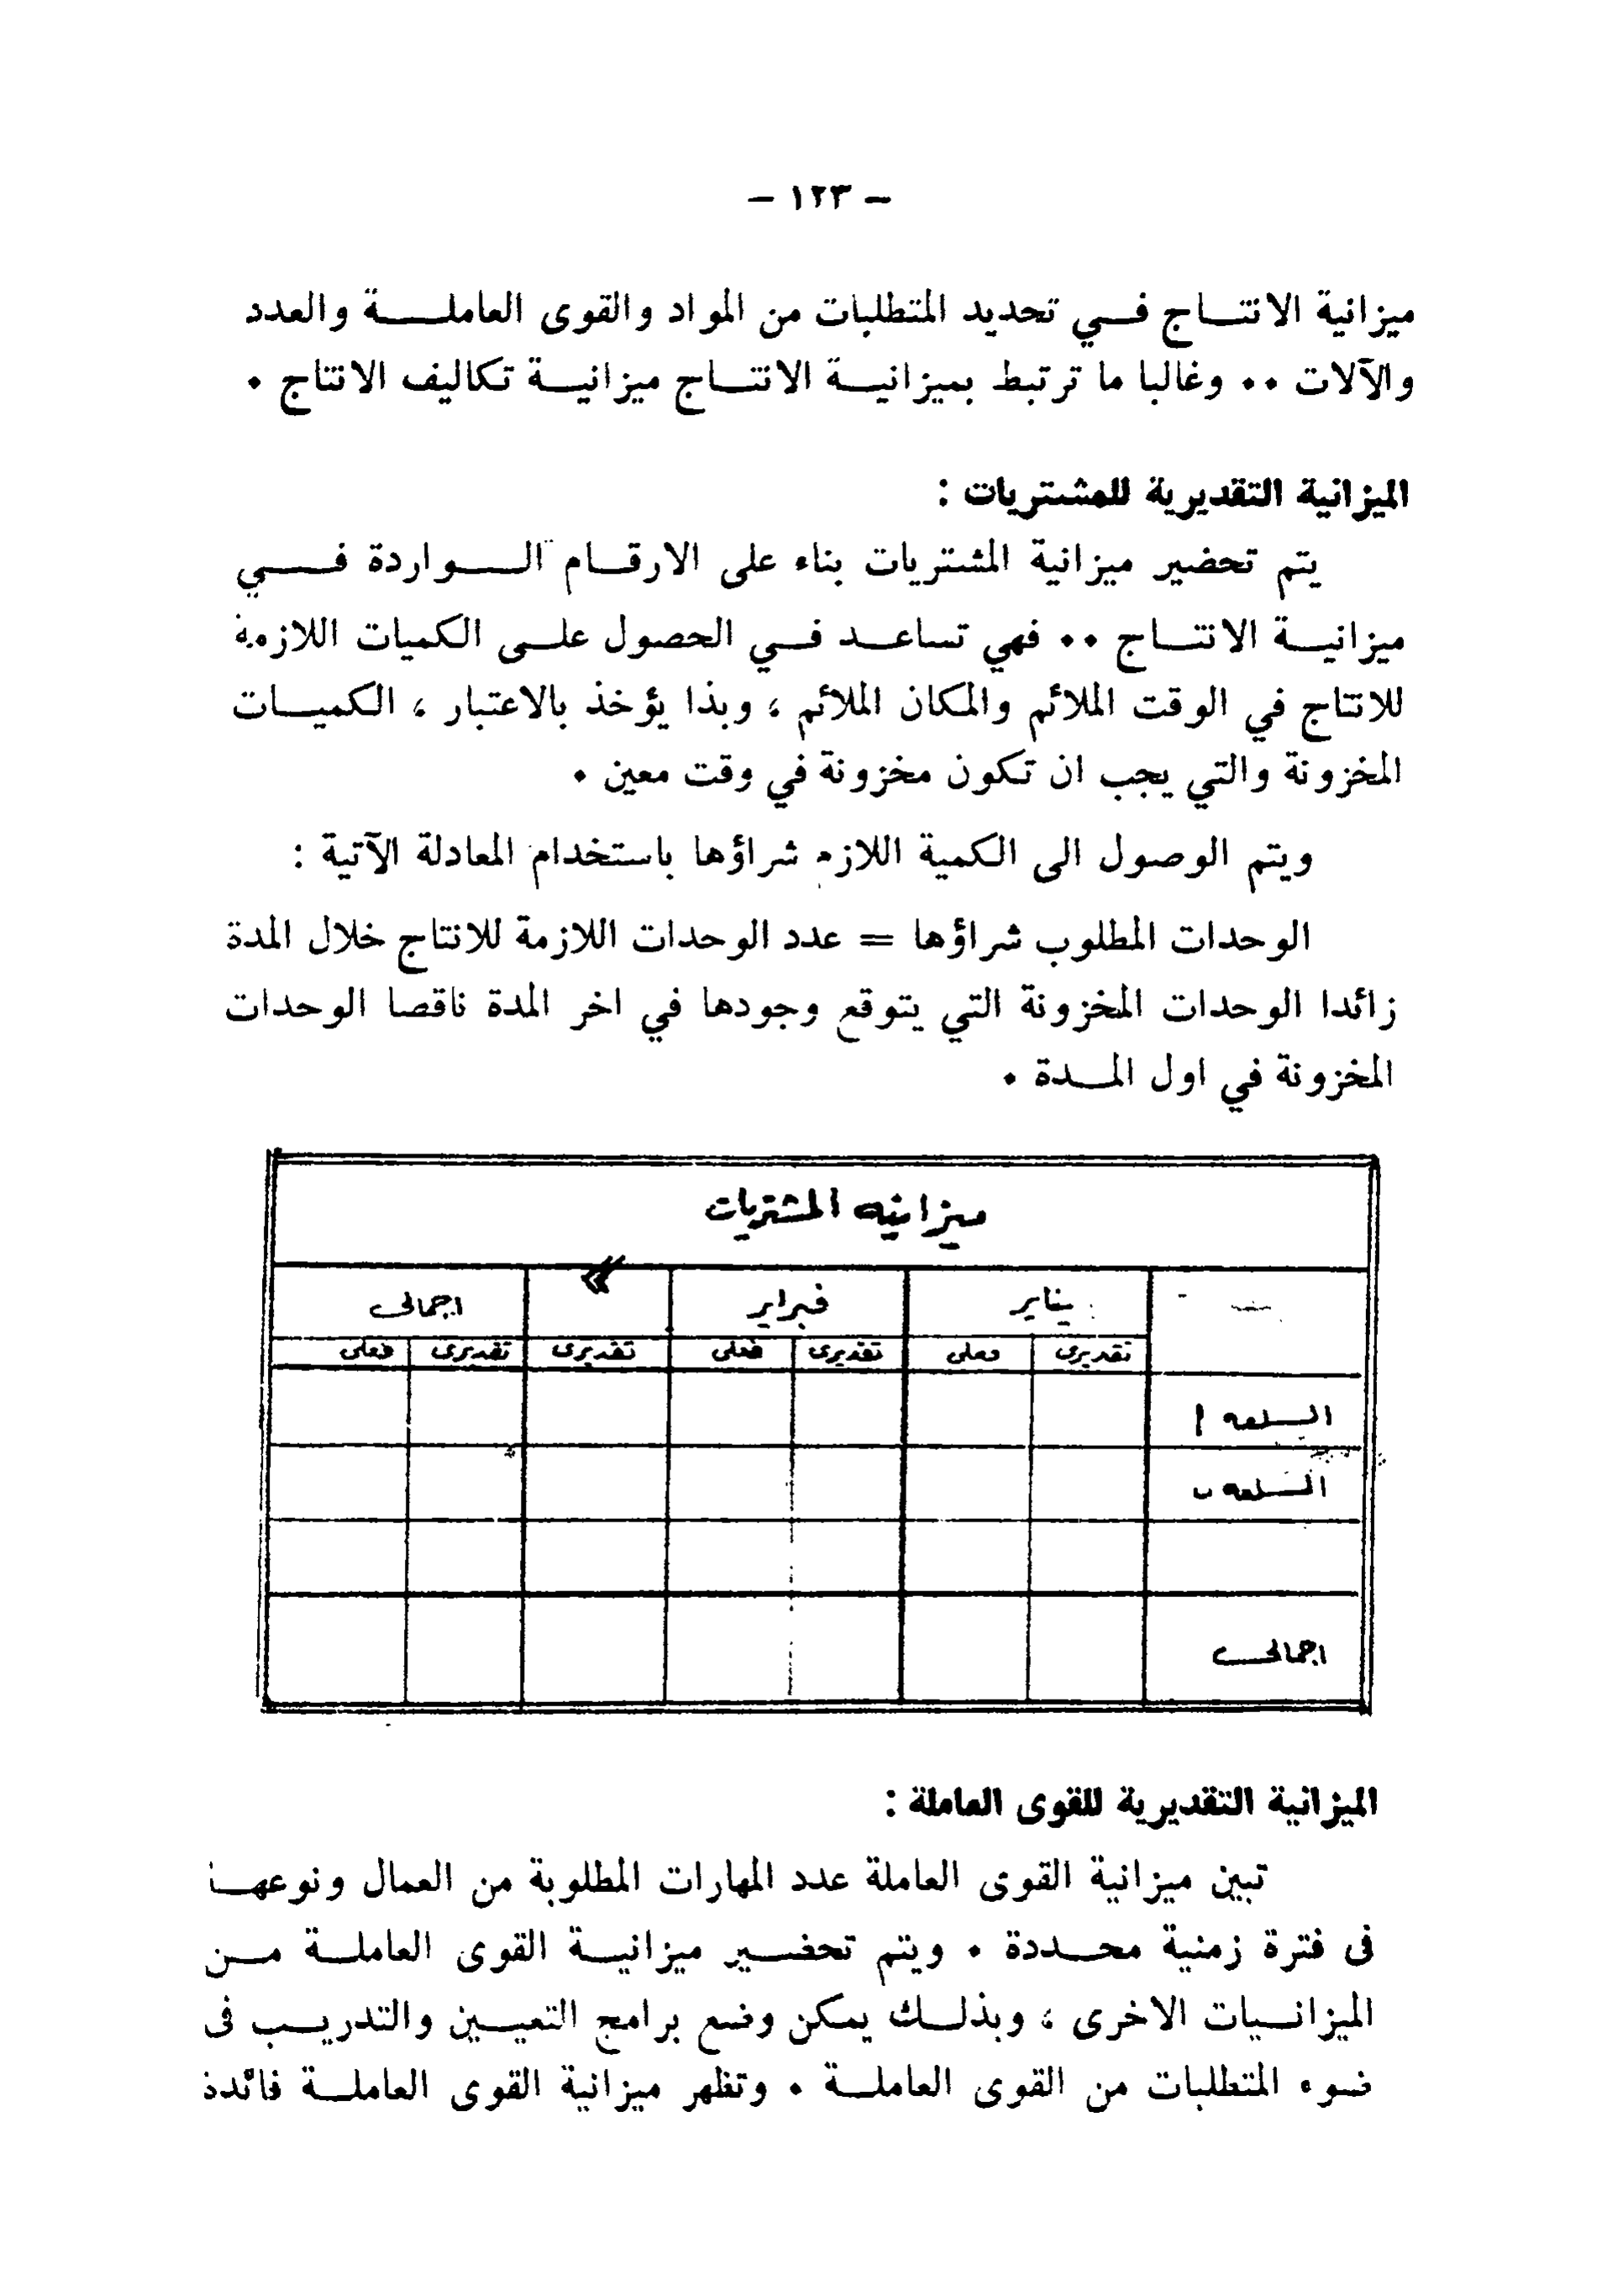 — ١٢٣ —
ميزانية الانتاج في تحديد المتطلبات من المواد والقوى العاملة والعدد
والآلات ٠٠ وغالبا ما ترتبط بميزانية الانتاج ميزانية تكاليف الانتاج ٠
الميزانية التقديرية للمشتريات :
يتم تحضير ميزانية المشتريات بناء على الارقام الواردة في
ميزانية الانتاج ٠٠ فهي تساعد في الحصول على الكميات اللازمة
للانتاج في الوقت الملائم والمكان الملائم ، وبذا يؤخذ بالاعتبار ، الكميات
المخزونة والتي يجب ان تكون مخزونة في وقت معين ٠
ويتم الوصول الى الكمية اللازم شراؤها باستخدام المعادلة الآتية :
الوحدات المطلوب شراؤها = عدد الوحدات اللازمة للانتاج خلال المدة
زائدا الوحدات المخزونة التي يتوقع وجودها في اخر المدة ناقصا الوحدات
المخزونة في اول المدة ٠
ميزانيه المشتريات
يناير فبراير » اجمالى
تقديرى فعلى تقديرى فعلى تقديرى تقديرى فعلى
السلعه أ
السلعه ب
اجمالى
الميزانية التقديرية للقوى العاملة :
تبين ميزانية القوى العاملة عدد المهارات المطلوبة من العمال ونوعها
فى فترة زمنية محددة ٠ ويتم تحضير ميزانية القوى العاملة من
الميزانيات الاخرى ، وبذلك يمكن وضع برامج التعيين والتدريب فى
ضوء المتطلبات من القوى العاملة ٠ وتظهر ميزانية القوى العاملة فائدة